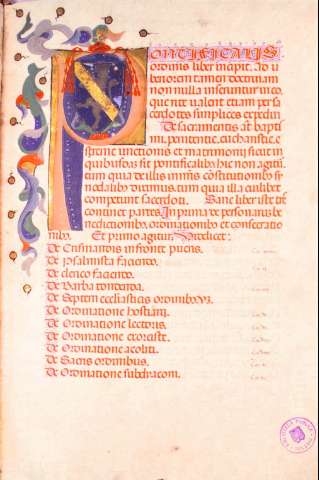 PONTIFICALIS
ordinis liber incipit. ad u
beriorem tamen doctrinam
non nulla inseruntur in eo,
que rite valent etiam per sa
cerdotes simplices expediri.
De sacramentis aut baptis
mi, penitentie, eucharistie, e
xtreme unctionis et matrimonii, sicut in
quibusdam fit pontificalibus, hic non agitur,
tum quia de illis in nris constitutionibus sy
nodalibus diximus, tum quia illa cuilibet
competunt sacerdoti. Sane liber iste tres
continet partes. In prima de personarum be
nedictionibus, ordinationibus et consecratio
nibus. Et primo agitur. Videlicet:
De Crismandis in fronte pueris.
De psalmista faciendo.
De clerico faciendo.
De Barba tondenda.
De Septem ecclesiasticis ordinibus.
De Ordinatione hostiarii.
De Ordinatione lectoris.
De Ordinatione exorciste.
De Ordinatione acoliti.
De Sacris ordinibus.
De Ordinatione subdiaconi.